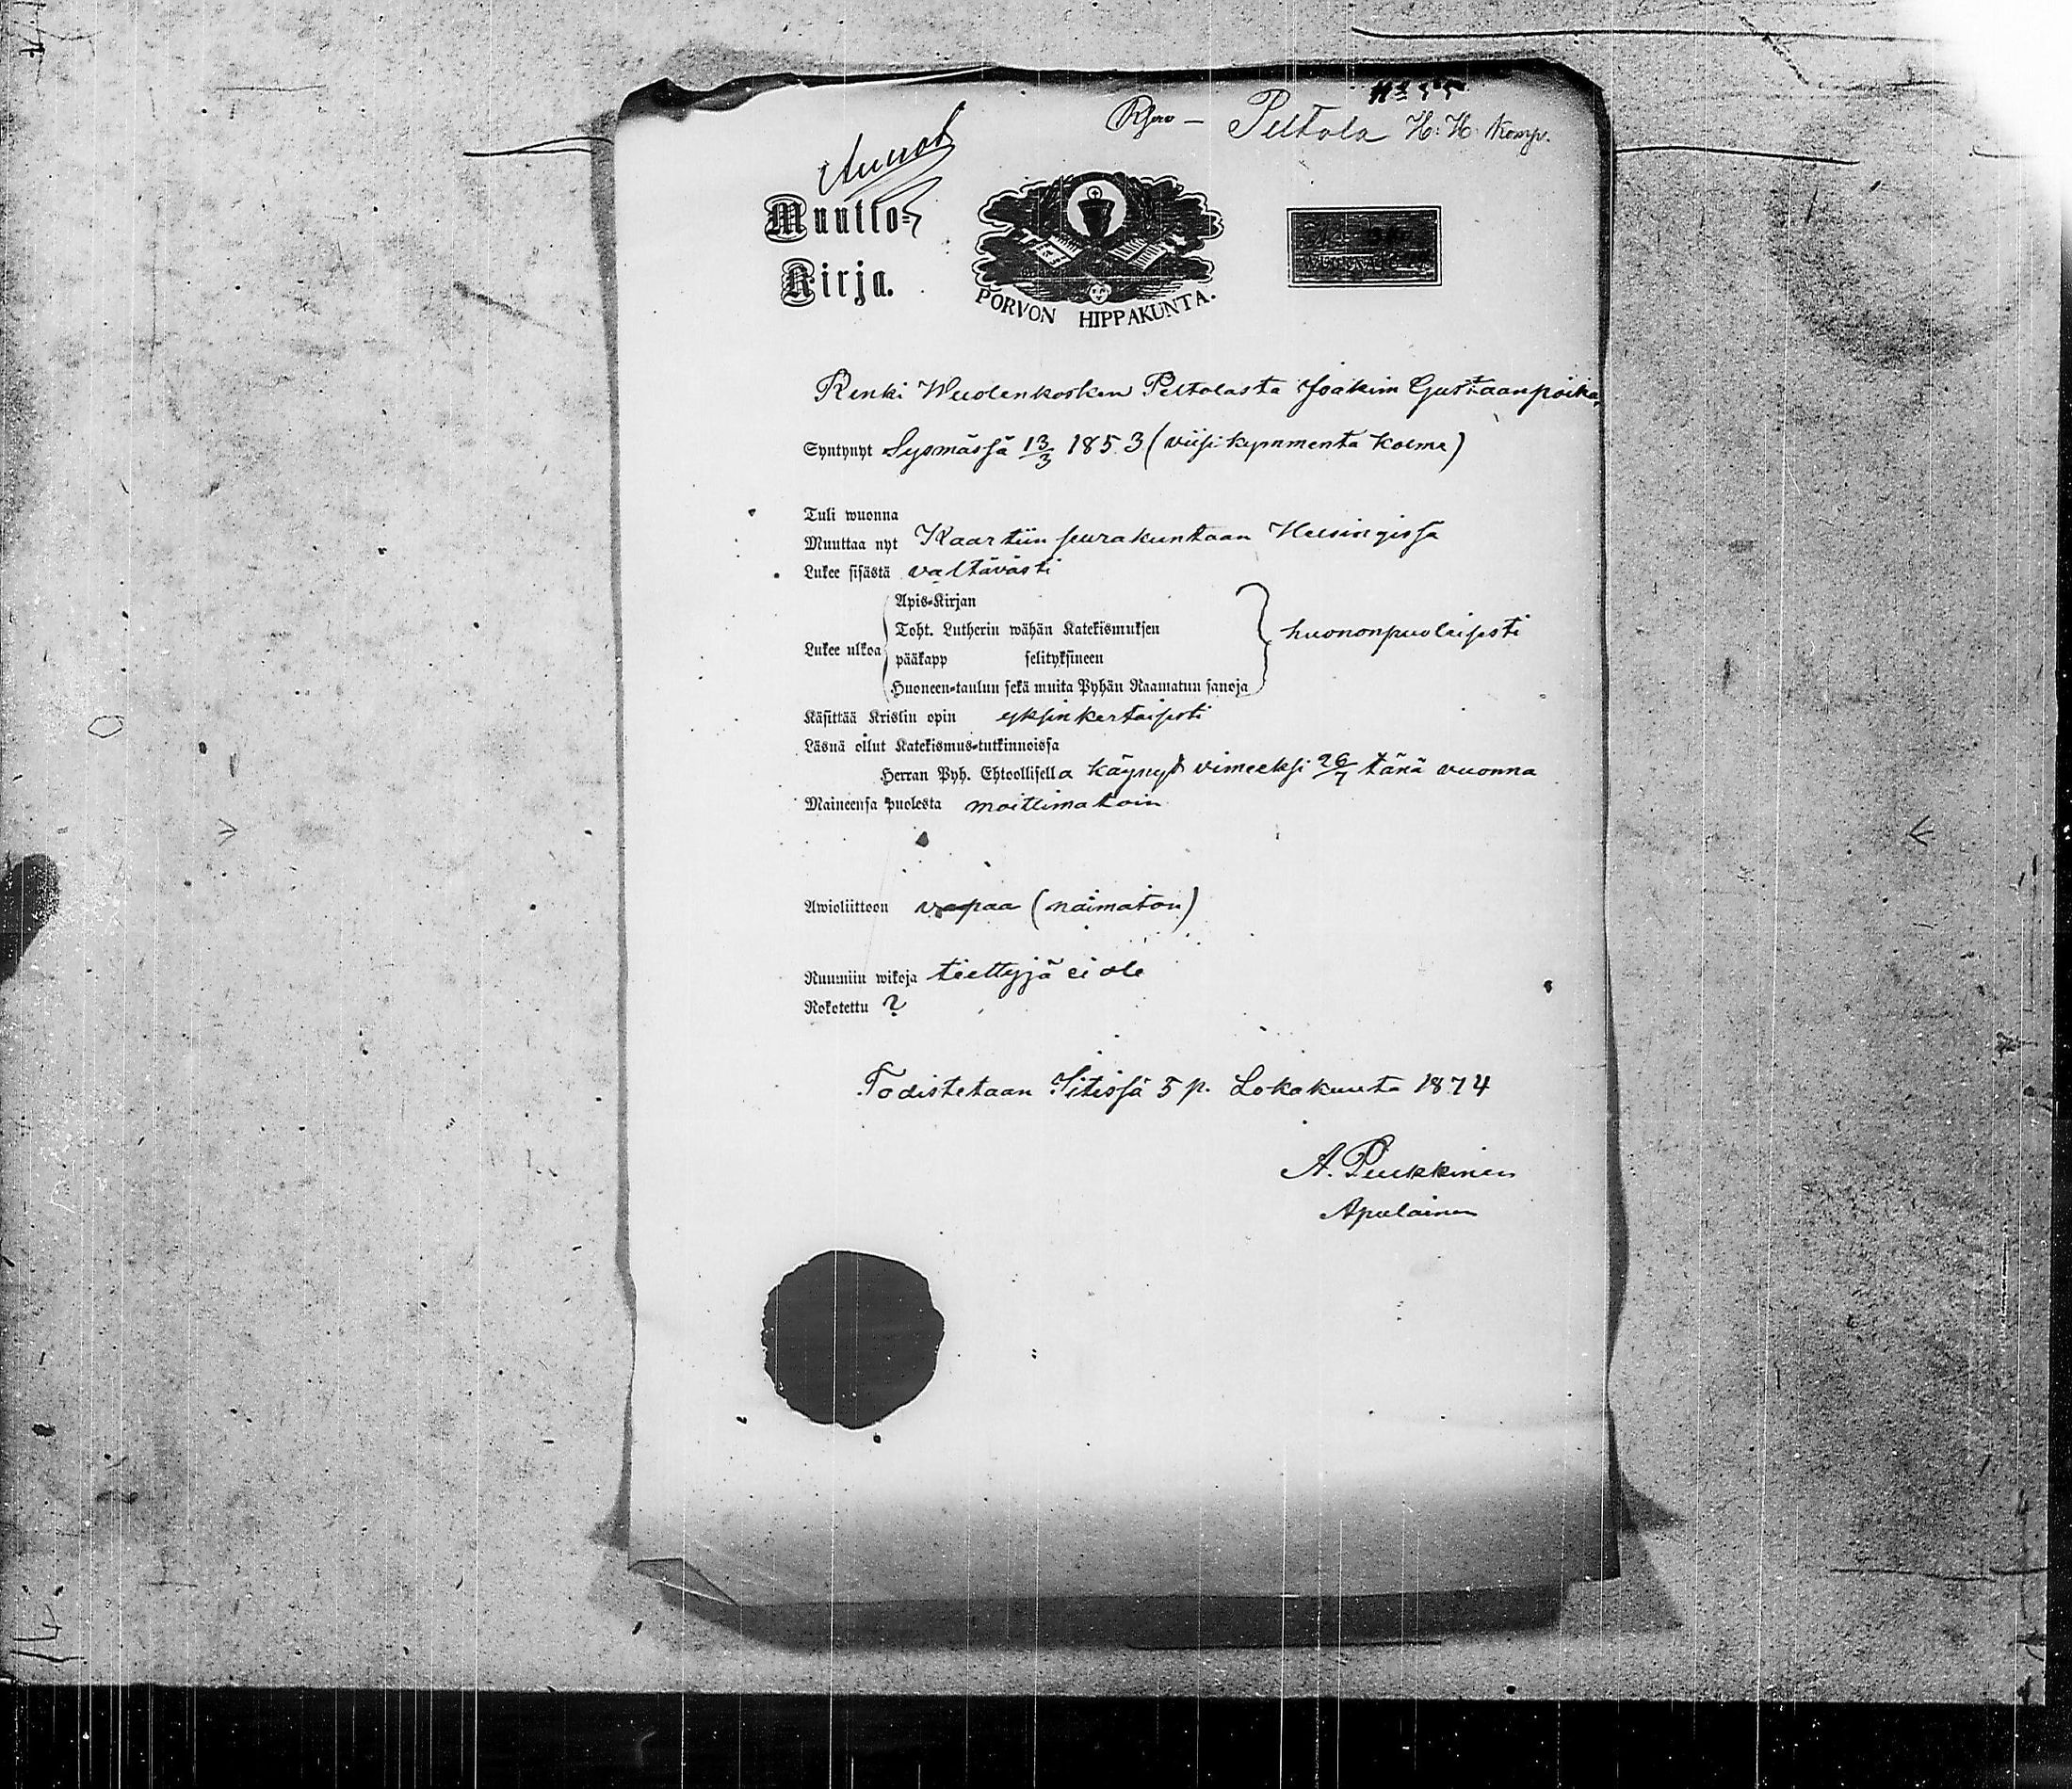 N:o 55
Peltola H: H: Komp.
Muutto=
Kirja.
PORVON HIPPAKUNTA.
Renki Wuolenkosken Peltolasta Joakim Gustaanpoika,
Syntynyt Sysmässä 13/3 1853 (viisikymmentä kolme)
Tuli wuonna
Muuttaa nyt Kaartiin seurakuntaan Helsingissä
Lukee sisästä valtävästi
Apis=Kirjan
Toht. Lutherin wähän Katekismuksen
Lukee ulkoa
pääkapp selityksineen
huononpuolisesti
Huoneen=taulun sekä muita Pyhän Raamatun sanoja
Käsittää Kristin opin yksinkertaisesti
Läsnä ollut Katekismus=tutkinnoissa
Herran Pyh. Ehtoollisella käynyt vimeeksi 26/7 tänä vuonna
Maineensa puolesta moittimatoin
Awioliittoon vapaa (naimaton)
Ruumiin wikoja tiettyjä ei ole
Rokotettu ?
Todistetaan Iitissä 5 p. Lokakuuta 1874
A. Pulkkinen
Apulainen